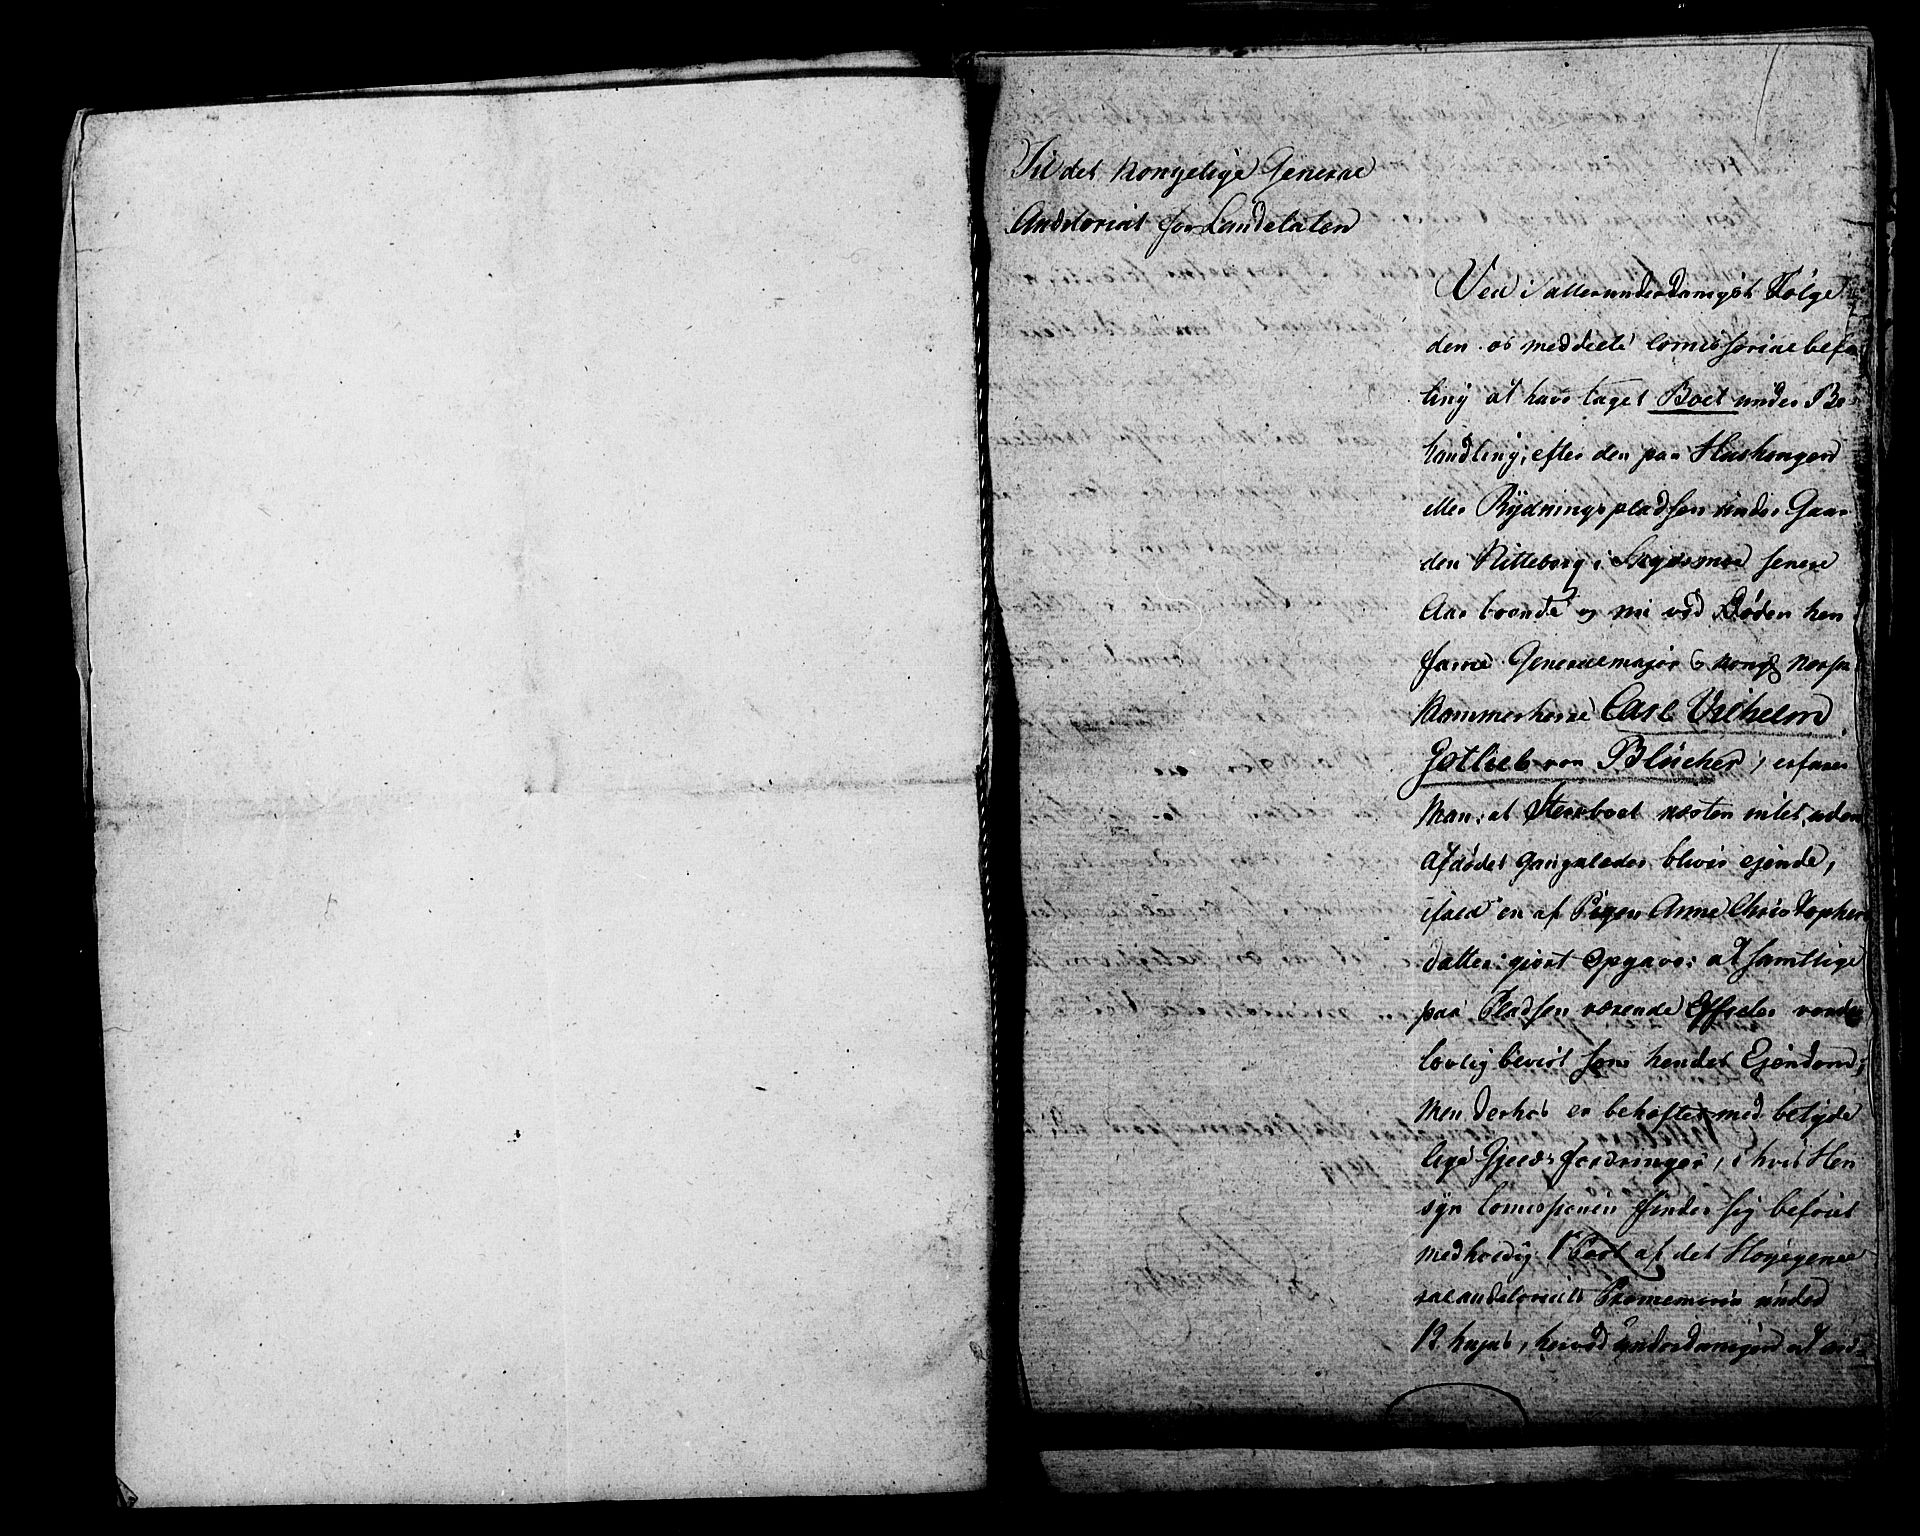 Til det Kongelige General
Auditoriat for Landetaten
Ved i allerunderdanigst Følge
den os meddeelte Comissoriae befa
ling at have taget Boet under Be
handling, efter den paa Huskongen
eller Rydningspladsen under Gaar
den Nitteborg i senere
Aar boende og nu ved Døden hen
farne Generalmajor og kongl norsk
Kammerherre Carl Vilhelm
Gotlieb von Blücher, erfarer
Man, at Sterboet næsten intet, uden
Afdødes Gangklæder bliver ejende,
ifald en af Pigen Anne Christopher
datter gjort Opgave: at samtlige
paa Pladsen værende Effecter vorde
lovlig bevist som hendes Ejendom;
Men derhos er behæftet med betyde
lige Gjelds Fordringer, i hvis Hen
syn Comissionen finder sig beføiet
medholdig 1ste Post af det Høye gene
ralauditoriats Promemoria under
12 hujus, herved underdanigst at